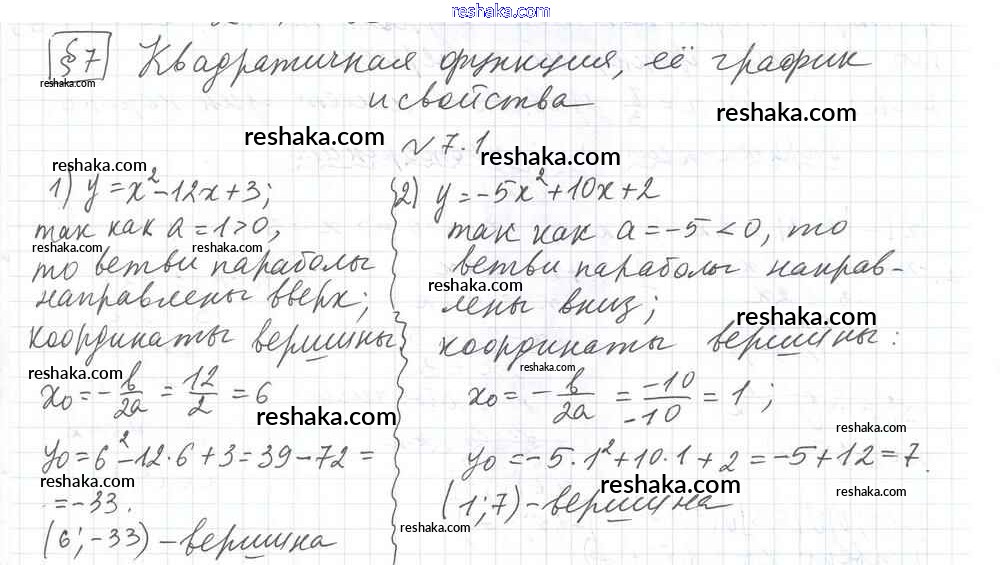 reshaka.com
§7 Квадратичная функция, её график
и свойства
reshaka.com
reshaka.com
reshaka.com
№ 7.1
reshaka.com
1) y = x² - 12x + 3;
так как a = 1 > 0,
reshaka.com reshaka.com
то ветви параболы
направлены вверх;
координаты вершины
reshaka.com
x₀ = - b/2a = 12/2 = 6
reshaka.com
y₀ = 6² - 12·6 + 3 = 39 - 72 =
reshaka.com
= -33.
(6; -33) - вершина
2) y = -5x² + 10x + 2
так как a = -5 < 0, то
ветви параболы направ-
reshaka.com
лены вниз;
reshaka.com
координаты вершины:
reshaka.com
x₀ = - b/2a = -10/-10 = 1;
reshaka.com
y₀ = -5·1² + 10·1 + 2 = -5 + 12 = 7.
reshaka.com
reshaka.com
(1; 7) - вершина
reshaka.com